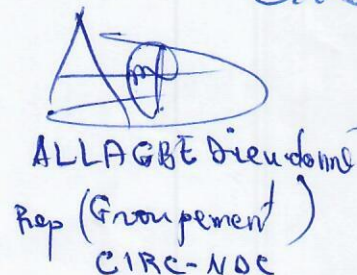 ALLAGBE Dieudonné
Rep (Groupement)
CIRC-NDC